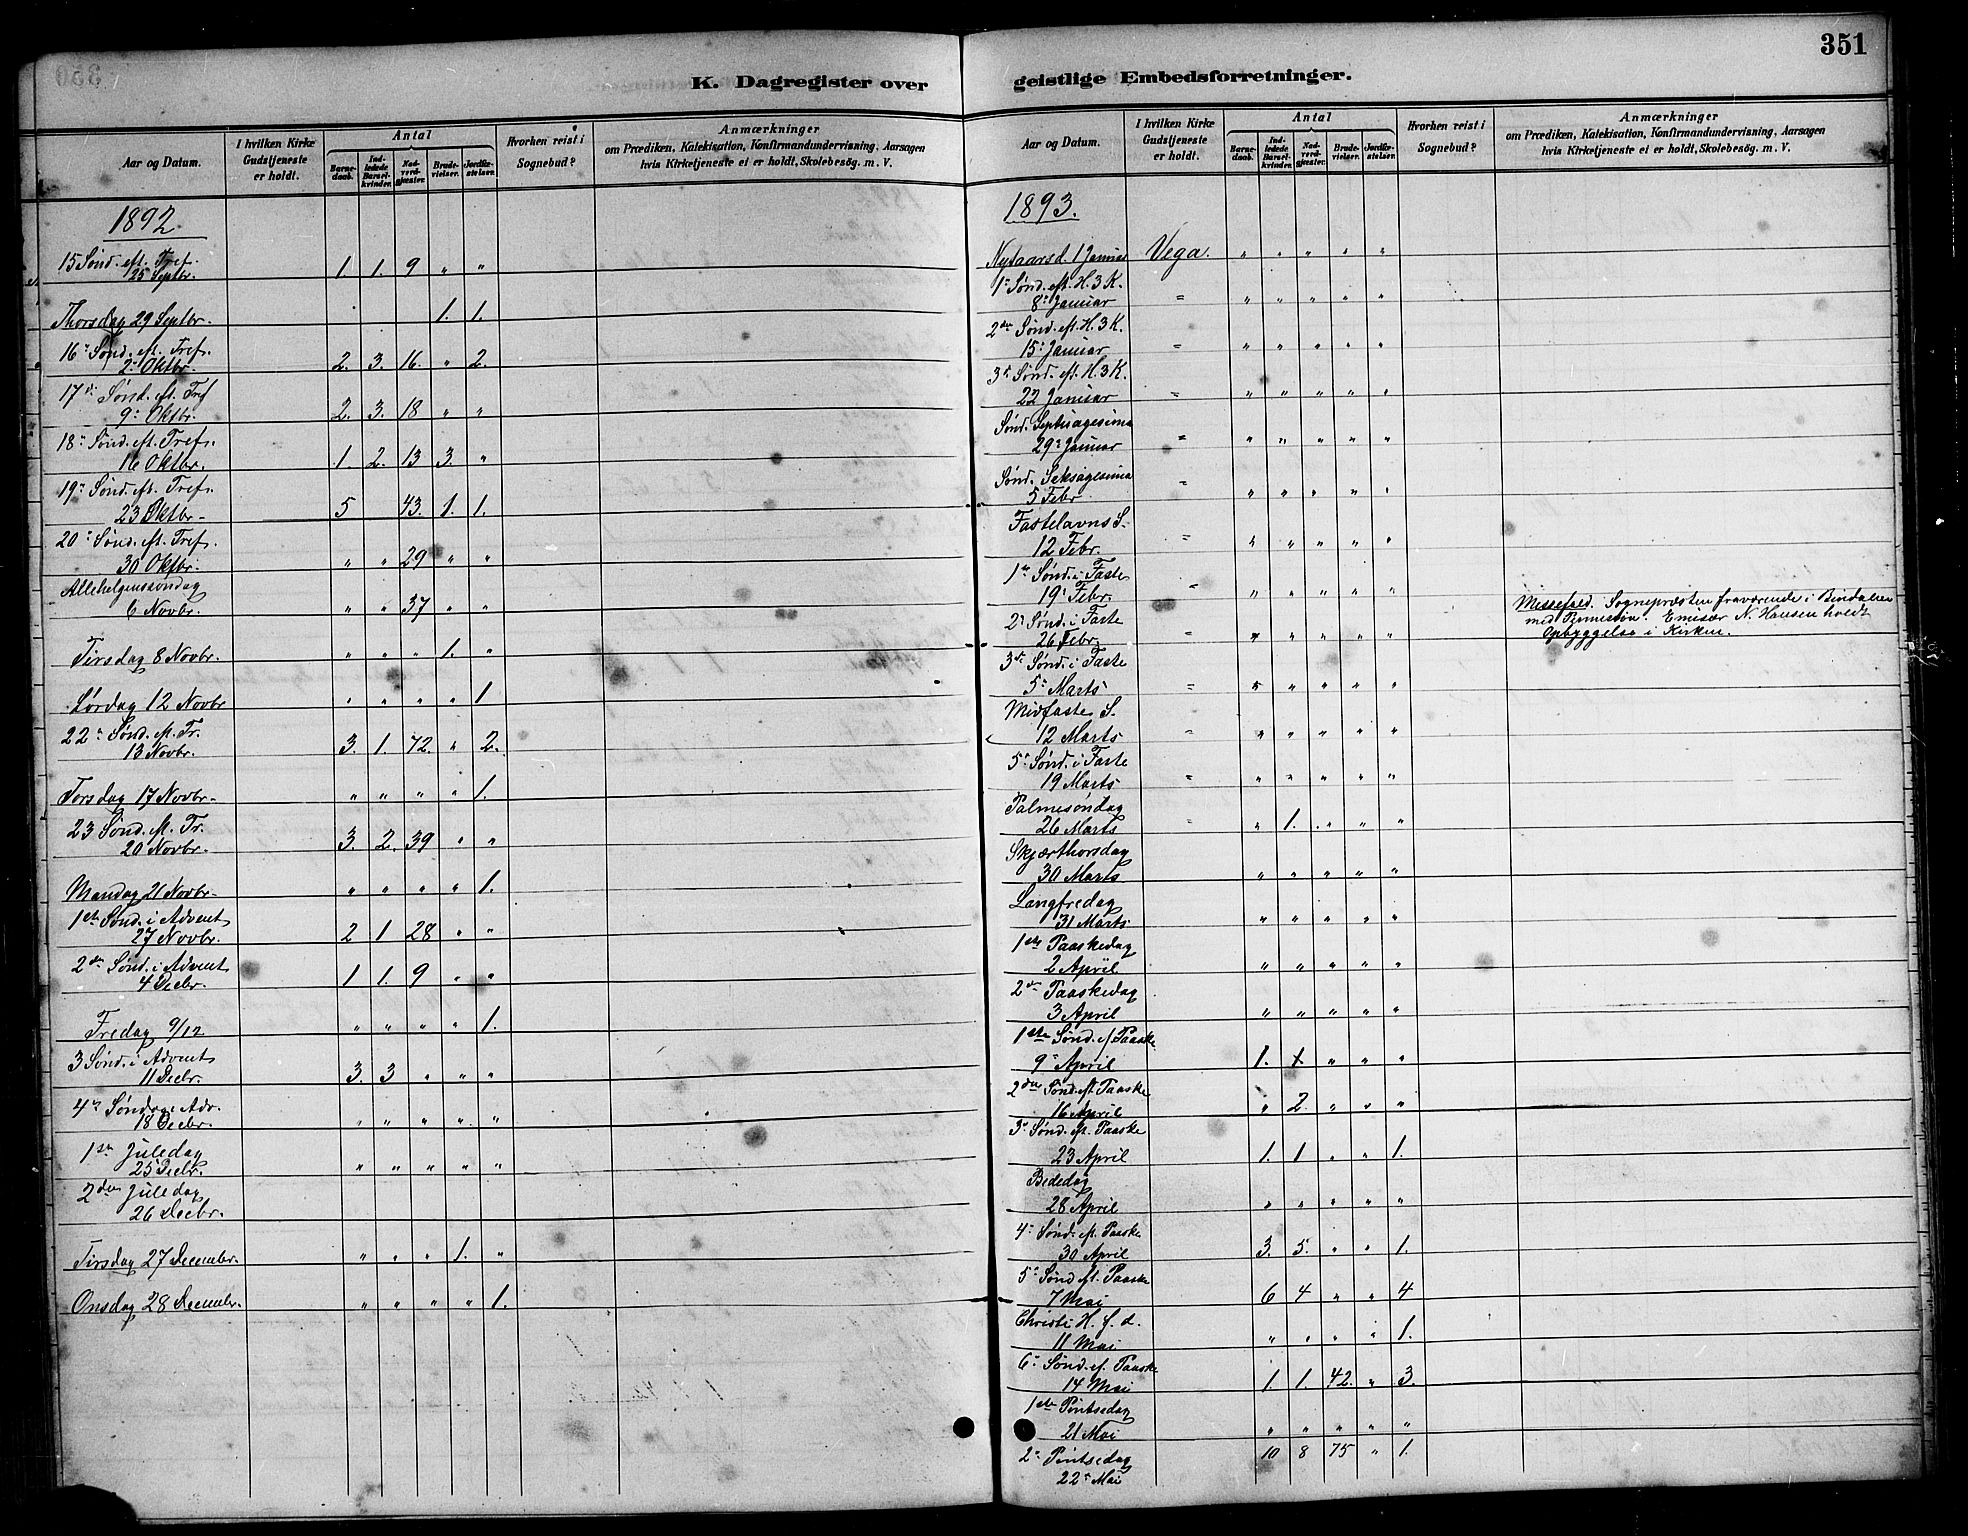 351
K. Dagregister over
geistlige Embedsforretninger.
Aar og Datum.
I hvilken Kirke
Gudstjeneste
er holdt.
Antal
Barne-
daab.
Ind-
ledede
Barsel-
kvinder.
Nad-
verd-
gjæster.
Brude-
vielser.
Jordfæ-
stelser.
Hvorhen reist i
Sognebud?
Anmærkninger
om Prædiken, Katekisation, Konfirmandundervisning, Aarsagen
hvis Kirketjeneste ei er holdt, Skolebesøg. m. V.
1892.
15 Sønd. eft. Tref.
25 Septbr. 1 1. 9 " "
Thorsdag 29 Septbr. 1. 1.
16de Sønd. eft. Tref.
2de Oktbr. 2. 3. 16. " 2.
17de Sønd. eft. Tref
9de Oktbr. 2. 3. 18 " "
18de Sønd. eft. Tref.
16 Oktbr. 1. 2. 13 3. "
19de Sønd. eft. Tref.
23 Oktbr. 5 43. 1. 1.
20de Sønd. eft. Tref.
30 Oktbr. " " 29 " "
Allehelgenssøndag
6 Novbr. " " 37 " "
Tirsdag 8 Novbr. " " " 1. "
Lørdag 12 Novbr " " " " 1
22de Sønd. eft. Tr.
13 Novbr. 3. 1. 72 " 2.
Torsdag 17 Novbr. " " " " 1.
23 Sønd. eft. Tr.
20 Novbr. 3. 2. 39 " "
Mandag 21 Novbr. " " " " 1.
1ste Sønd. i Advent
27 Novbr. 2 1 28 " "
2den Sønd. i Advent
4 Decbr. 1 1. 9 " "
Fredag 9/12 " " " " 1.
3 Sønd. i Advent
11 Decbr. 3. 3 " " "
4de Søndag i Adv.
18 Decbr. " " " " "
1ste Juledag
25 Decbr. " " " " "
2den Juledag
26 Decbr.
Tirsdag 27 December. " " " 1. "
Onsdag 28 Decembr. " " " " 1.
Aar og Datum.
I hvilken Kirke
Gudstjeneste
er holdt.
Antal
Barne-
daab.
Ind-
ledede
Barsel-
kvinder.
Nad-
verd-
gjæster.
Brude-
vielser.
Jordfæ-
stelser.
Hvorhen reist i
Sognebud?
Anmærkninger
om Prædiken, Katekisation, Konfirmandundervisning, Aarsagen
hvis Kirketjeneste ei er holdt, Skolebesøg. m. V.
1893.
Nytaarsd. 1 Januar Vega. " " " " "
1ste Sønd. eft. H. 3 K.
8de Januar = " " " " "
2den Sønd. eft. H. 3 K.
15de Januar = " " " " "
3die Sønd. eft. H. 3 K.
22 Januar = " " " " "
Sønd. Septuagesima
29de Januar = " " " " "
Sønd. Seksagesima
5 Febr = " " " " "
Fastelavns S.
12 Febr. = " " " " "
1ste Sønd. i Faste
19de Febr. = " " " " "
2den Sønd. i Faste
26 Febr. = " " " " "
Messefald. Sognepræsten fraværende i Bindalen
med Emisær N. Hansen holdt
Opbyggelse i Kirken.
3die Sønd. i Faste
5te Marts = " " " " "
Midfaste S.
12 Marts = " " " " "
5te Sønd. i Faste
19 Marts = " " " " "
Palmesøndag
26 Marts " " 1. " " "
Skjærthorsdag
30 Marts " " " " "
Langfredag
31 Marts " " " " "
1ste Paaskedag
2 April " " " " "
2den Paaskedag
3 April " " " " "
1ste Sønd. e/ Paaske
9de April 1. 1 " " "
2den Sønd. eft. Paaske
16 April " 2. " " "
3die Sønd. eft. Paaske
23 April 1. 1 " " 1.
Bededag
28 April " " " " "
4de Sønd. eft. Paaske
30 April 3. 5. " " 1.
5te Sønd. eft. Paaske
7 Mai 6 4 " " 4
Christi H. f. d.
11 Mai " " " " 1.
6te Sønd. eft. Paaske
14 Mai 1. 1. 42. " 3.
1ste Pintsedag
21 Mai " " " " "
2den Pintsedag 10 8 75 " 1.
22de Mai